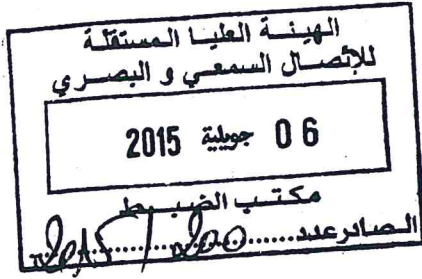 الهيئة العليا المستقلة
للإتصال السمعي و البصري
06 جويلية 2015
مكتب الضبط
الصادر عدد